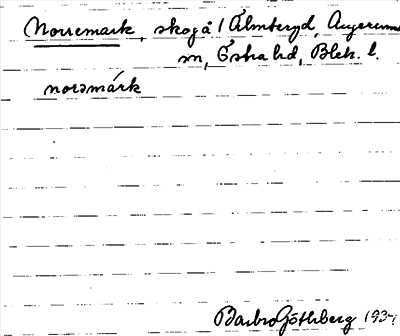 Norremark, skogå i Älmteryd, Augerums
sn, Östra hd, Blek. l.
norəmárk
Barbro Göthberg 1934